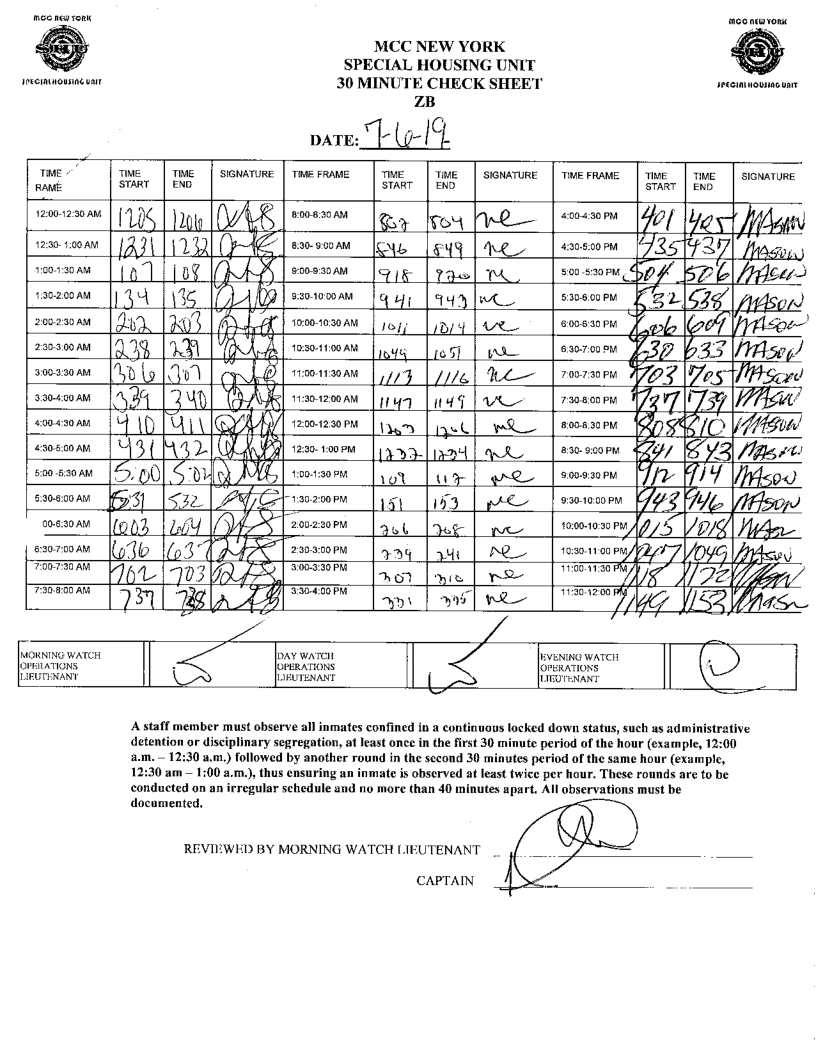 MCC NEW YORK
SHU
SPECIAL HOUSING UNIT
MCC NEW YORK
SPECIAL HOUSING UNIT
30 MINUTE CHECK SHEET
ZB
MCC NEW YORK
SHU
SPECIAL HOUSING UNIT
DATE: 7-6-19
TIME RAME TIME START TIME END SIGNATURE TIME FRAME TIME START TIME END SIGNATURE TIME FRAME TIME START TIME END SIGNATURE
12:00-12:30 AM 1205 1206 8:00-8:30 AM 802 804 4:00-4:30 PM 401 405 MASON
12:30- 1:00 AM 1231 1232 8:30- 9:00 AM 846 849 4:30-5:00 PM 435 437 MASON
1:00-1:30 AM 107 108 9:00-9:30 AM 918 920 5:00 -5:30 PM 504 506 MASON
1:30-2:00 AM 134 135 9:30-10:00 AM 941 943 5:30-6:00 PM 532 538 MASON
2:00-2:30 AM 202 203 10:00-10:30 AM 1011 1014 6:00-6:30 PM 606 609 MASON
2:30-3:00 AM 238 239 10:30-11:00 AM 1049 1051 6:30-7:00 PM 630 633 MASON
3:00-3:30 AM 306 307 11:00-11:30 AM 1113 1116 7:00-7:30 PM 703 705 MASON
3:30-4:00 AM 339 340 11:30-12:00 AM 1147 1149 7:30-8:00 PM 737 739 MASON
4:00-4:30 AM 410 411 12:00-12:30 PM 1203 1206 8:00-8:30 PM 808 810 MASON
4:30-5:00 AM 431 432 12:30- 1:00 PM 1232 1234 8:30- 9:00 PM 841 843 MASON
5:00 -5:30 AM 5:00 5:02 1:00-1:30 PM 109 112 9:00-9:30 PM 912 914 MASON
5:30-6:00 AM 531 532 1:30-2:00 PM 151 153 9:30-10:00 PM 943 946 MASON
00-6:30 AM 603 604 2:00-2:30 PM 206 208 10:00-10:30 PM 1015 1018 MASON
6:30-7:00 AM 636 637 2:30-3:00 PM 239 241 10:30-11:00 PM 1047 1049 MASON
7:00-7:30 AM 702 703 3:00-3:30 PM 307 310 11:00-11:30 PM 1118 1122 MASON
7:30-8:00 AM 737 738 3:30-4:00 PM 331 335 11:30-12:00 PM 1149 1153 MASON
MORNING WATCH OPERATIONS LIEUTENANT DAY WATCH OPERATIONS LIEUTENANT EVENING WATCH OPERATIONS LIEUTENANT
A staff member must observe all inmates confined in a continuous locked down status, such as administrative
detention or disciplinary segregation, at least once in the first 30 minute period of the hour (example, 12:00
a.m. – 12:30 a.m.) followed by another round in the second 30 minutes period of the same hour (example,
12:30 am – 1:00 a.m.), thus ensuring an inmate is observed at least twice per hour. These rounds are to be
conducted on an irregular schedule and no more than 40 minutes apart. All observations must be
documented.
REVIEWED BY MORNING WATCH LIEUTENANT
CAPTAIN